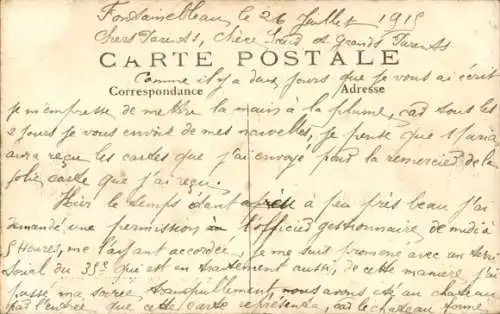 Fontainebleau, le 26 Juillet 1915
Chers Parents, chère Sœur et Grands Parents
CARTE POSTALE
Comme il y a deux jours que je vous ai écrit
Correspondance
Adresse
je m'empresse de mettre la main à la plume, car tous les
2 jours je vous envoie de mes nouvelles, je pense que Maria
aura reçu les cartes que j'ai envoyé pour la remercier de la
jolie carte que j'ai reçu.
Hier le temps étant à peu près beau j'ai
demandé une permission à l'officier gestionnaire de midi à
5 heures, me l'ayant accordée, je me suis promené avec un
du 35e qui est en traitement aussi, de cette manière j'ai
passé ma soirée tranquillement, nous avons été au château
par l'entrée que cette carte représente, car le château fermé